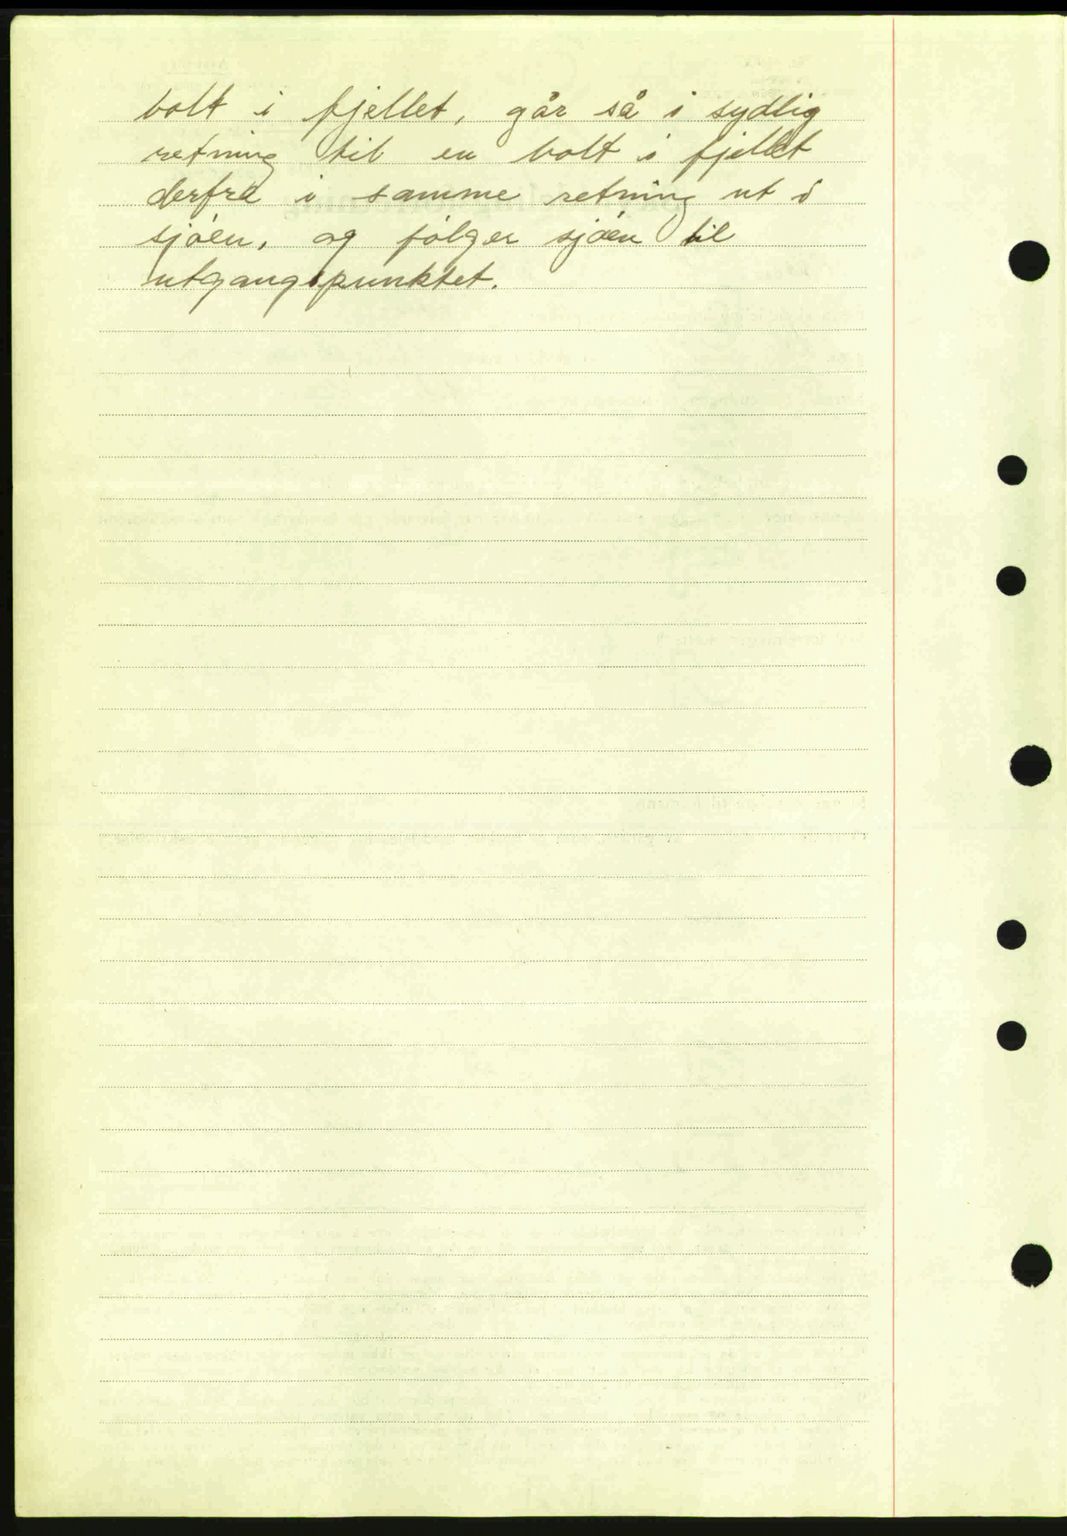 bolt i fjellet, går så i sydlig
retning til en bolt i fjellet
derfra i samme retning ut i
sjøen, og følger sjøen til
utgangspunktet.